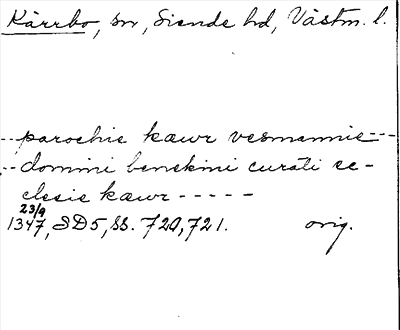 Kärrbo, sn, Siende hd, Västm. l.
--parochie kæwr vesmannie---
--domini benekini curati ec-
clesie kæwr -----
23/9
1347, SD5, ss. 720, 721. orig.